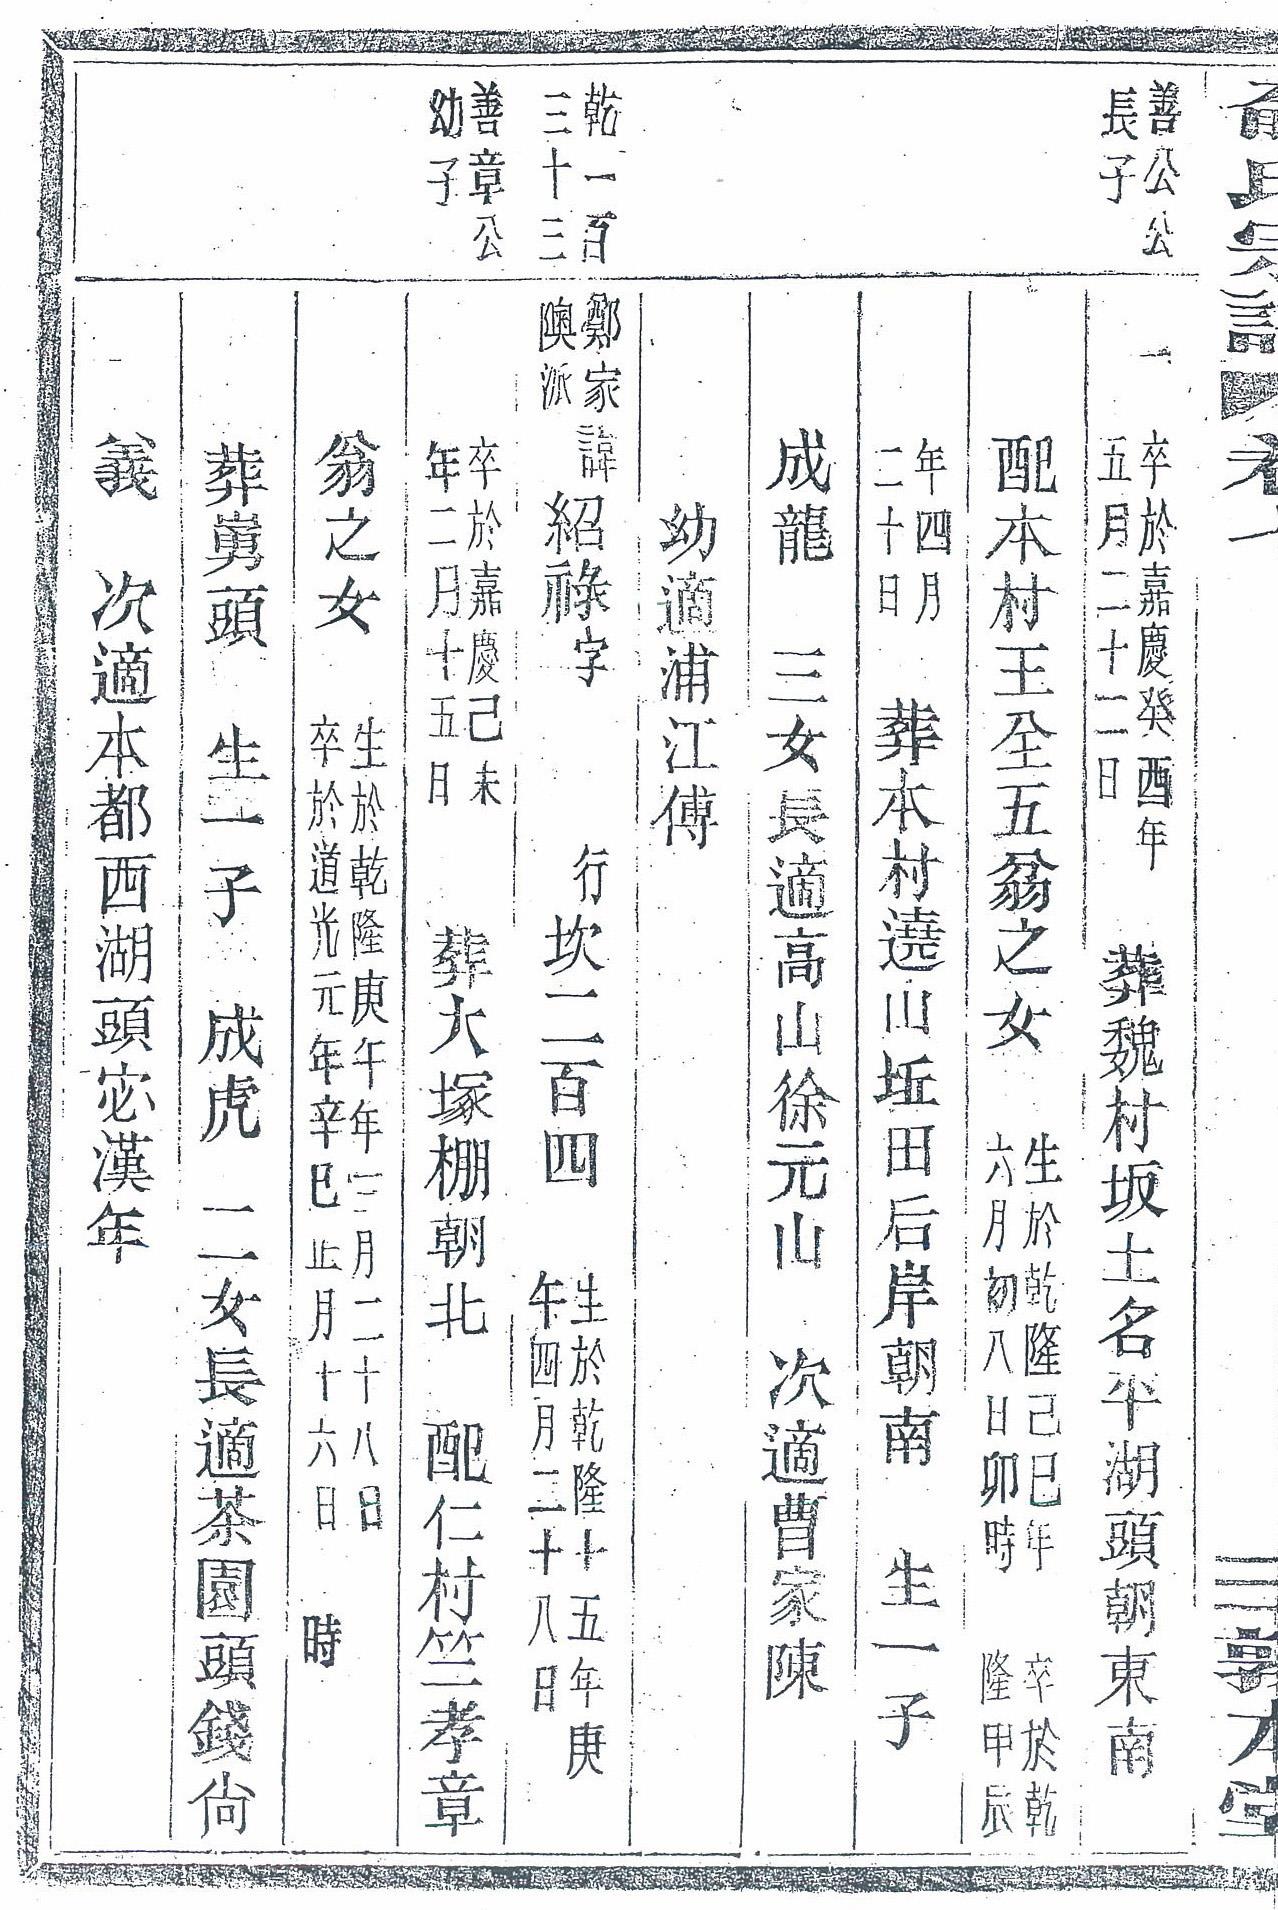 氏宗譜 卷
敦本堂
善公公
長子
一
卒於嘉慶癸酉年
五月二十二日
葬魏村坂土名平湖頭朝東南
配本村王全五翁之女
生於乾隆己巳年
六月初八日卯時
卒於乾
隆甲辰
年四月
二十日
葬本村遶山坵田后岸朝南 生一子
成龍 三女長適高山徐元山 次適曹家陳
幼適浦江傅
乾一百
三十三
鄭家
隩派
諱紹祿字 行坎二百四
生於乾隆十五年庚
午四月二十八日
善章公
幼子
卒於嘉慶己未
年二月十五日
葬大塚棚朝北 配仁村竺孝章
翁之女
生於乾隆庚午年三月二十八日
卒於道光元年辛巳正月十六日 時
葬舅頭 生一子 成虎 二女長適茶園頭錢尙
義 次適本都西湖頭宓漢年